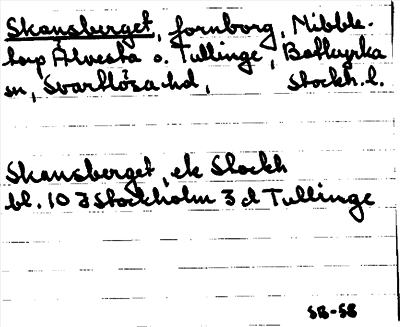 Skansberget, fornborg, Nibble-
torp Alvesta o. Tullinge, Botkyrka
sn, Svartlösa hd, Stockh. l.
Skansberget, ek Stockh
bl. 10 I Stockholm 3 d Tullinge
SB-58